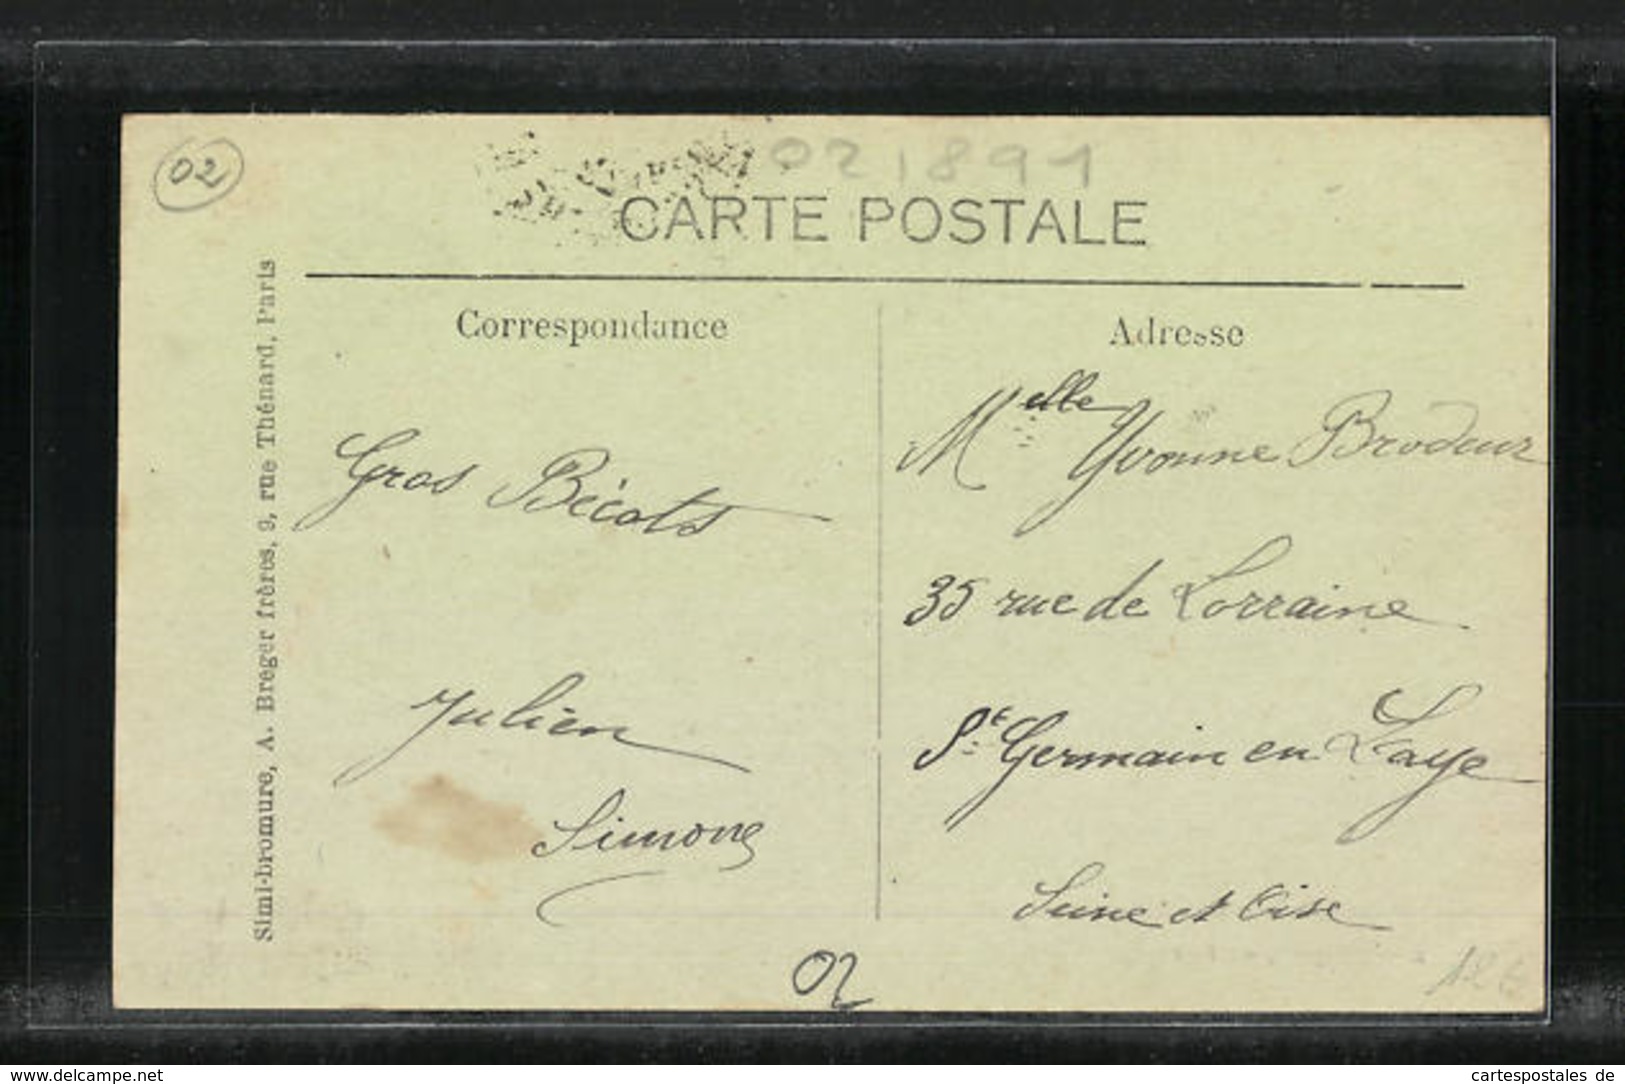 02
021891
CARTE POSTALE
Correspondance
Adresse
Simi-bromure, A. Breger frères, 9, rue Thénard, Paris
Gros Bécots
Julien
Simone
Melle Yvonne Brodeur
35 rue de Lorraine
St Germain en Laye
Seine et Oise
02
www.delcampe.net
cartespostales de